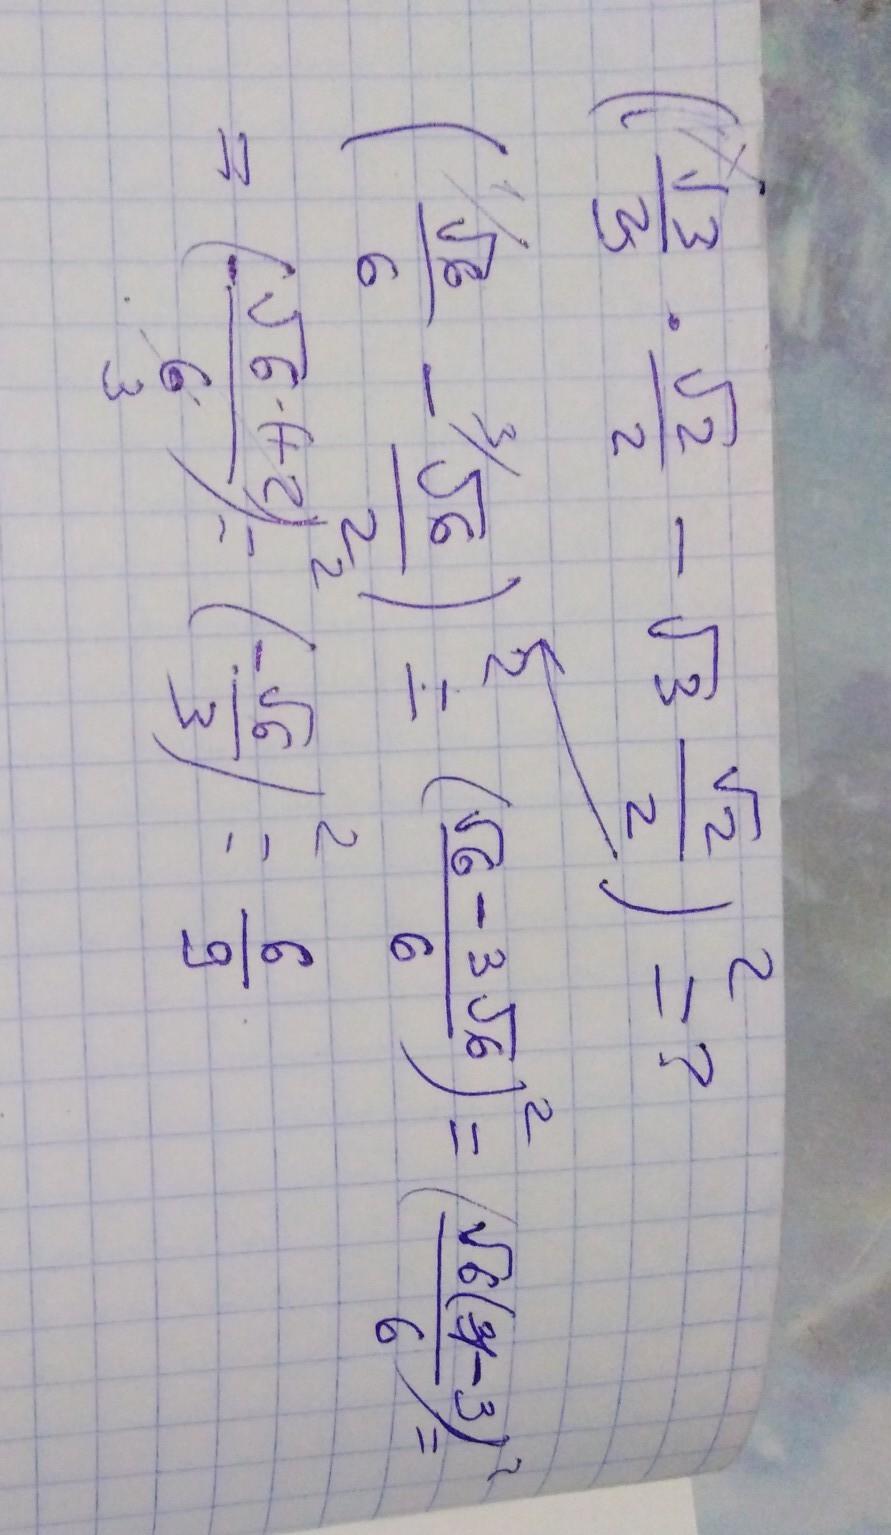 (√3/3 · √2/2 − √3 √2/2)² = ?
(1/ √6/6 − 3/ √6/2)² = (√6 − 3√6 / 6)² = (√6(1−3) / 6)² =
= (√6·(−2) / 6 3)² = (−√6/3)² = 6/9